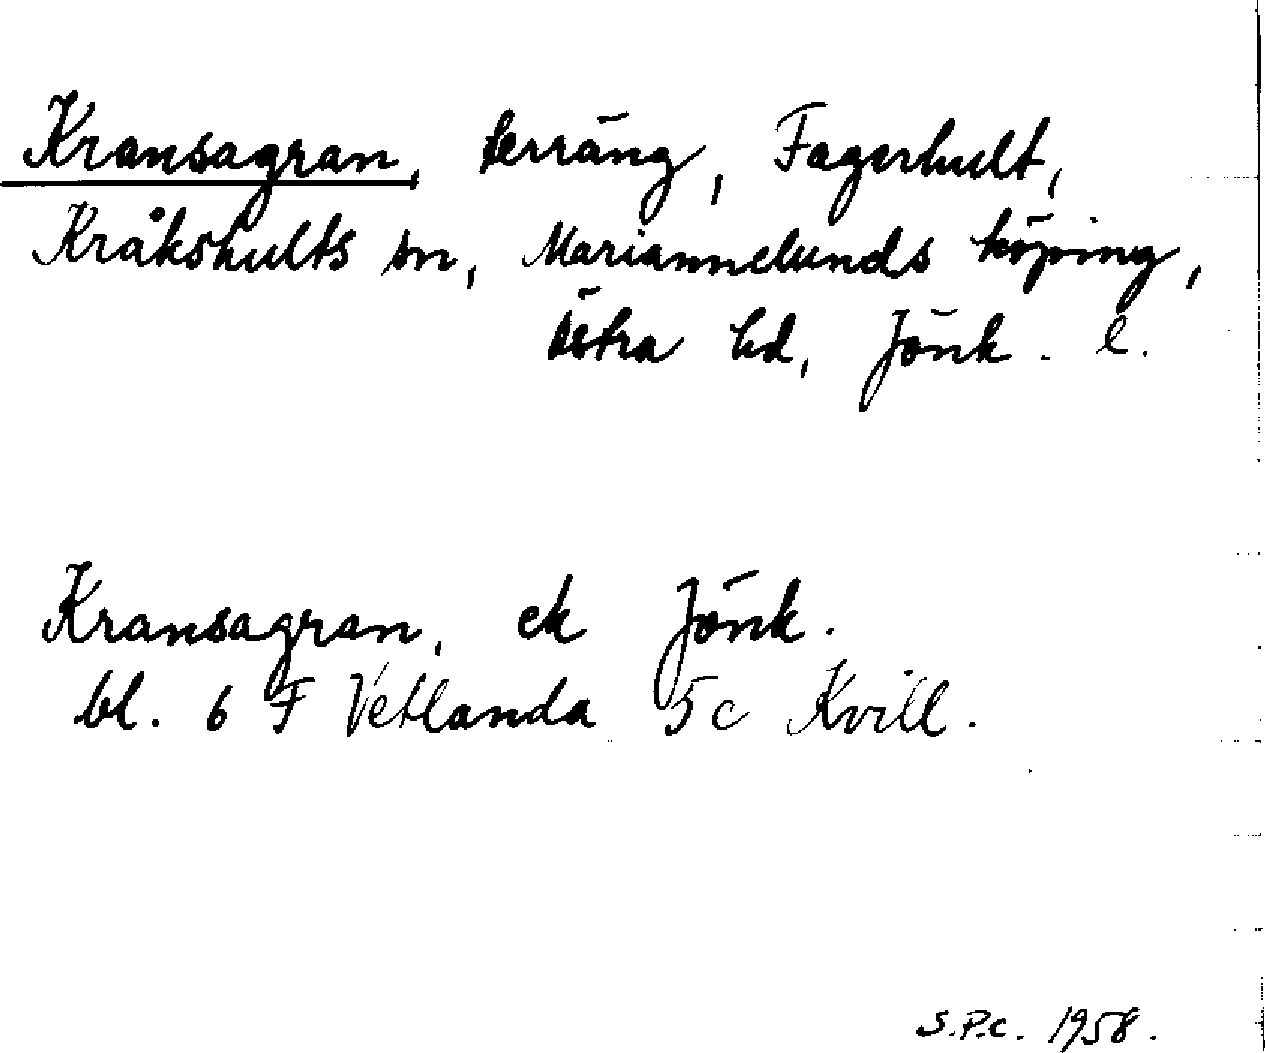 Kransagran, terräng, Fagerhult,
Kråkshults sn, Mariannelunds köping,
Östra hd, Jönk. l.
Kransagran, ek Jönk.
bl. 6 F Vetlanda 5c Kvill.
S.P.C. 1958.